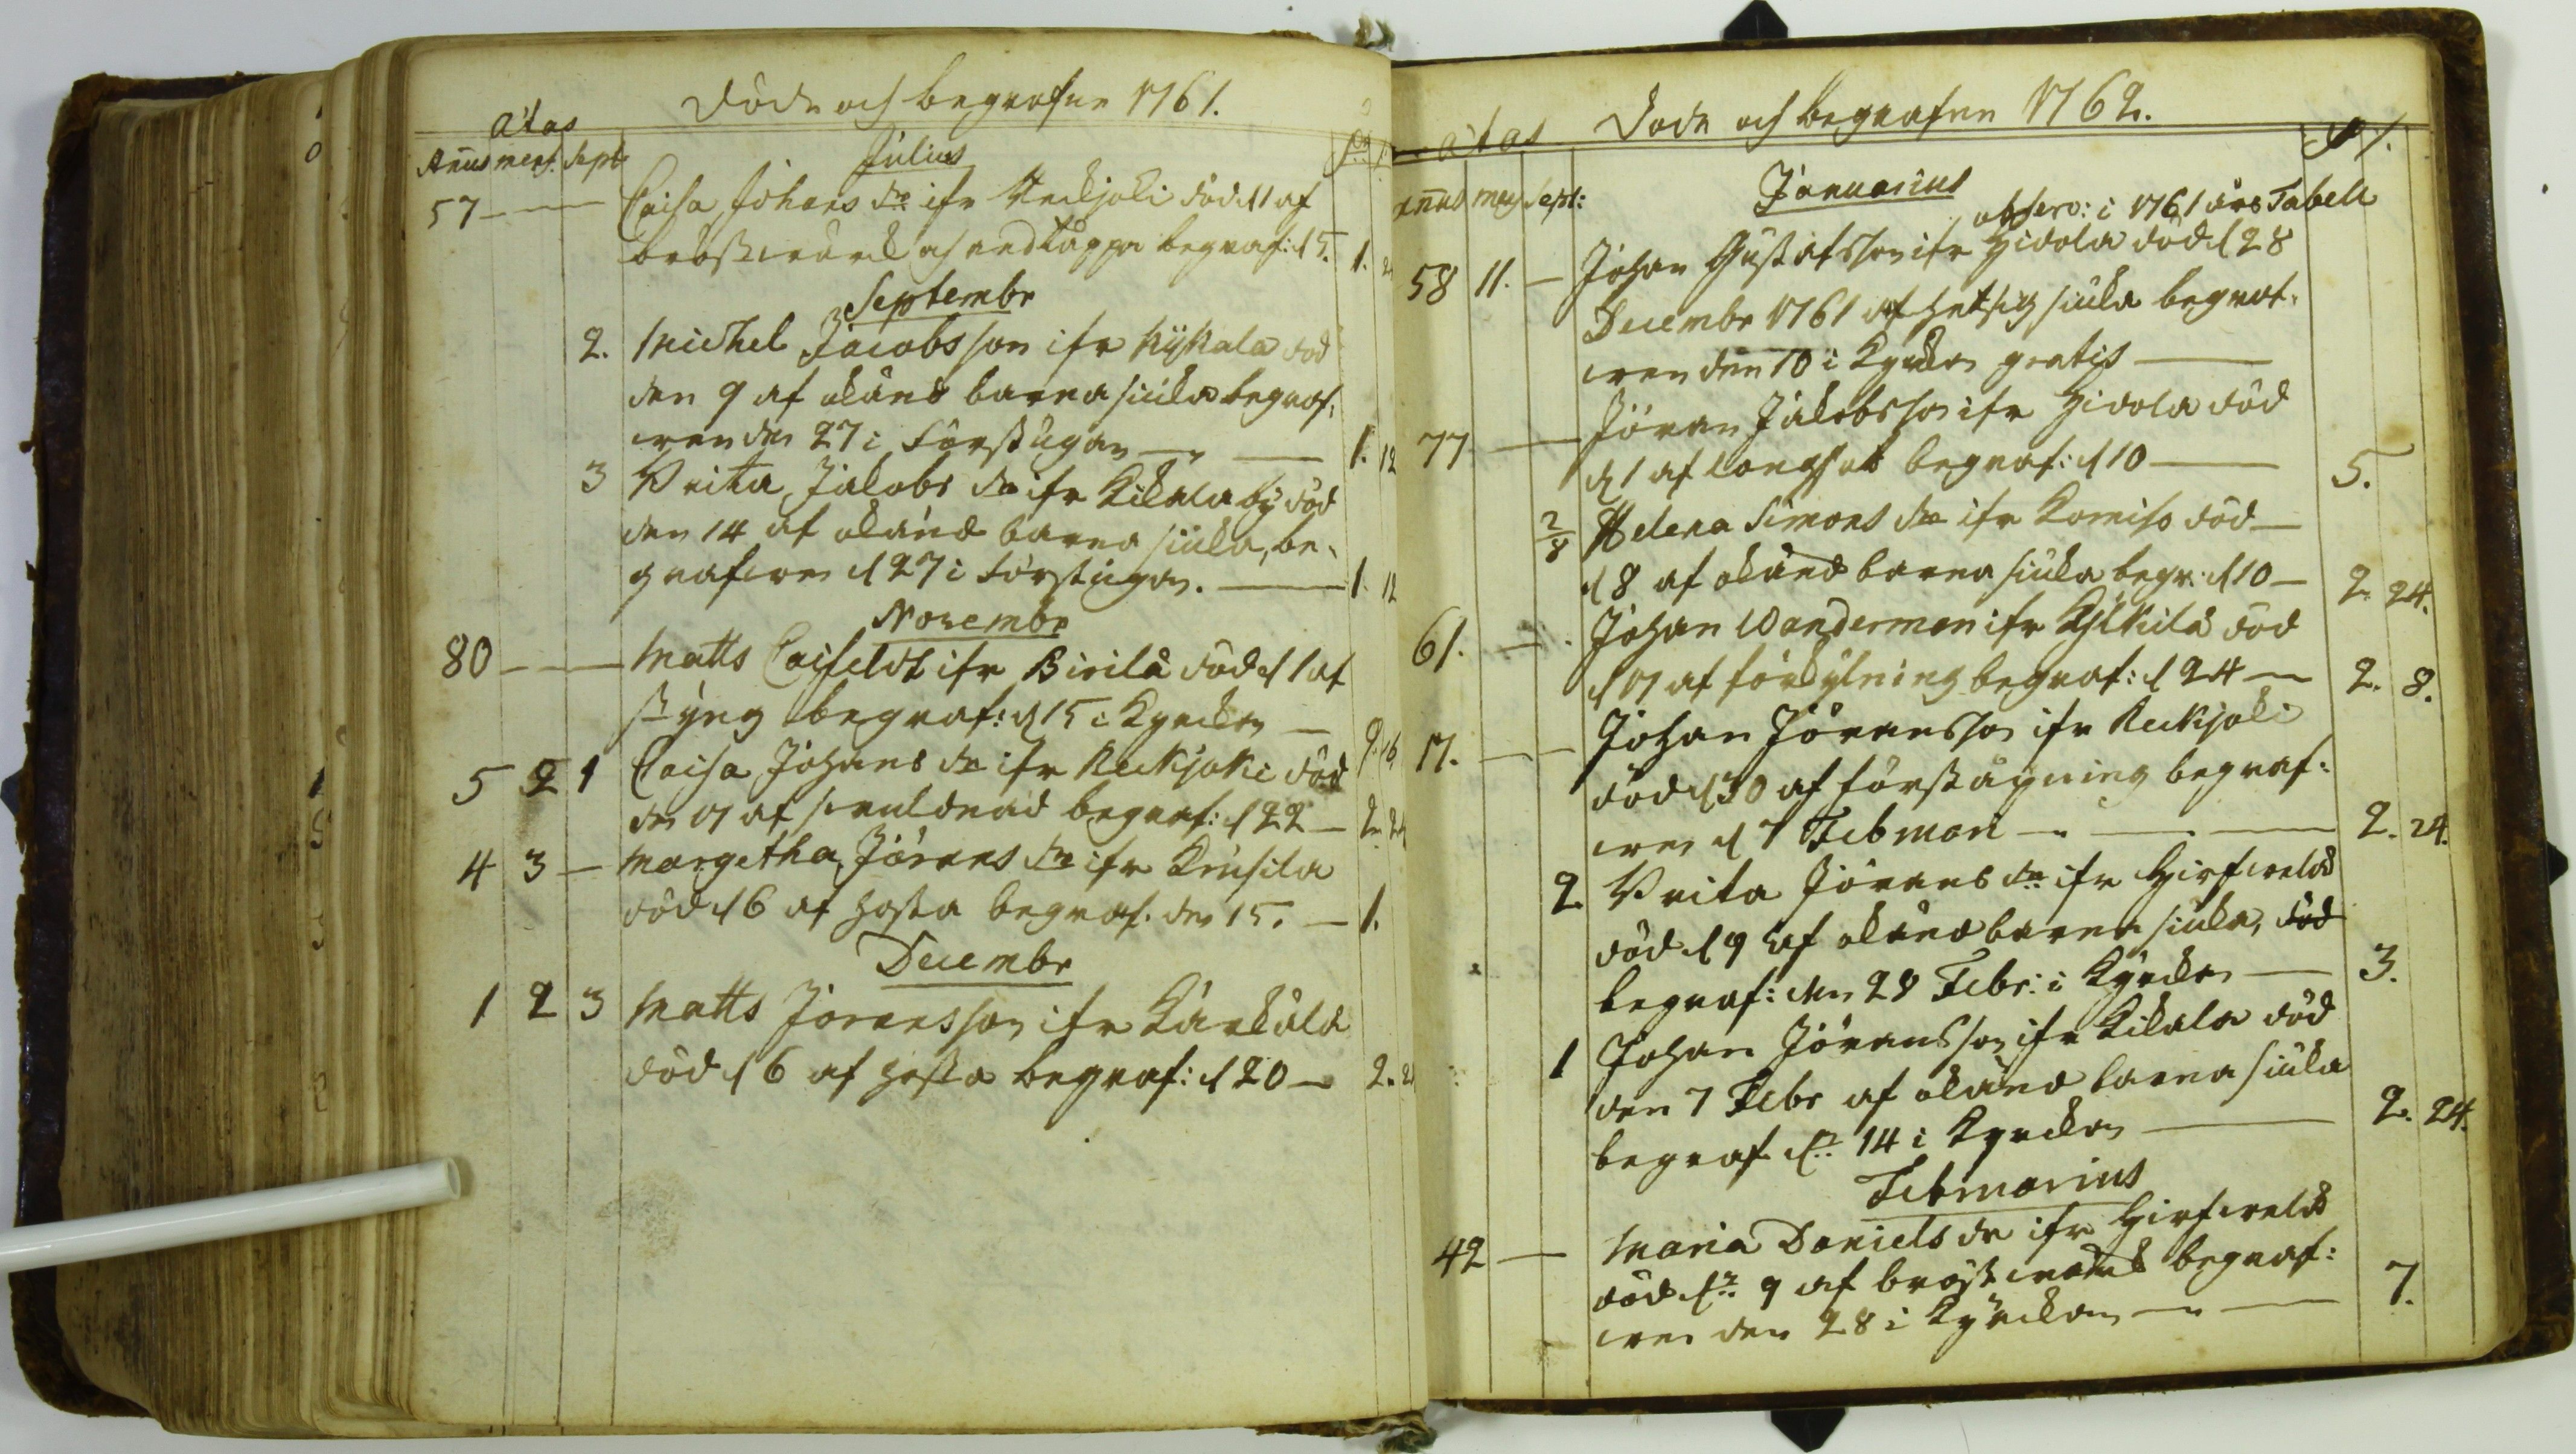 Döde och begrafne 1761.
ätas
Annus mens. Sept.
Julius
57 — Caisa Johans dr ifr Reckjoki död d 1 af
bröstwärck och andtäppa begraf: d 5. 1.
Septembr
2. Michel Jacobsson ifr Kykala död
den 9 af okänd barnasiuka begraf.
wen den 27 i Förstugan — 1. 12
3 Brita Jakobs dr ifr Kikala by död
den 14 af okänd barna siuka, be-
grafwen d 27 i Förstugan. — 1. 12
Novembr
80 — Matts Caiseldt ifr Birilä död d 1 af
styng begraf: d 15 i Kyrckan — 16
5 2 1 Caisa Johans dr ifr Reckjoki död
den 17 af swuldnad begraf: d 22 — 2. 24
4 3 — Margetha Jörans dr ifr Krusila
död d 6 af hosta begraf. den 15. — 1.
Decembr
1 2 3 Matts Joransson ifr Kärkälä
död d 6 af hosta begraf: d 20 — 2.
Döde och begrafne 1762.
ätas
annus mens Sept:
Januarius
observ: i 1761 års Tabell
58 11. — Johan Gustafsson ifr Hidola död d 28
Decembr 1761 af hetsig siuka begraf-
wen den 10 i Kyrckan gratis —
77. — Jöran Jakobsson ifr Hidola död
d 1 af långsot begraf: d 10 — 5.
2/8 Helena Simons dr ifr Komiso död —
d 8 af okänd barna siuka begr: d 10 — 2. 24.
61. — Johan Wanderman ifr Kylkilä död
d 17 af förkylning begraf: d 24 — 2. 8.
17. — Johan Jöransson ifr Reckjoki
död d 30 af förstäpning begraf:
wen d 7 Februari — 2. 24.
2. Brita Jörans dr ifr Hirfwelä
död d 9 af okänd barna siuka, död
begraf: den 28 Febr: i Kyrckan — 3.
1 Johan Jöransson ifr Kikala död
den 7 Febr af okänd barna siuka
begraf dn 14 i Kyrckan — 2. 24.
Februarius
42 — Maria Daniels dr ifr Hirfwelä
död dn 9 af bröstwärck begraf:
wen den 28 i Kyrckan — 7.